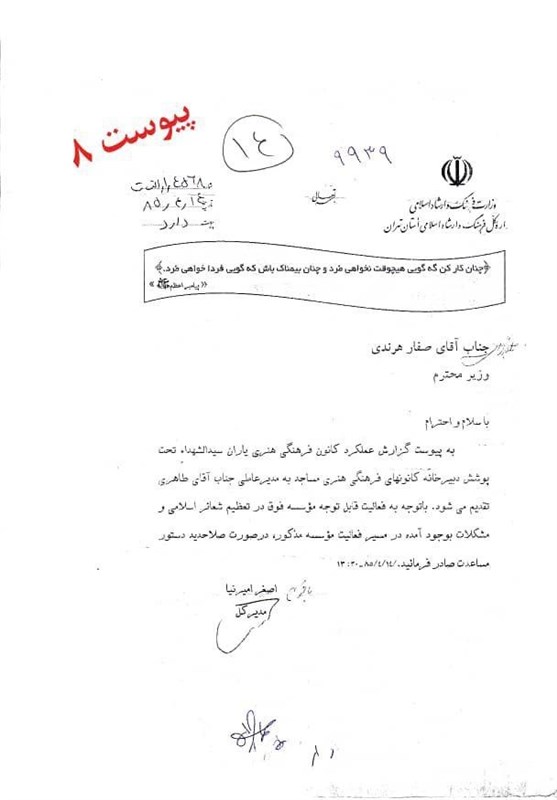 پیوست ۸
۱٤
۹۹۳۹
بسمه تعالی
وزارت فرهنگ و ارشاد اسلامی
اداره کل فرهنگ و ارشاد اسلامی استان تهران
دارد
﴿چنان کار کن که گویی هیچوقت نخواهی مرد و چنان بیمناک باش که گویی فردا خواهی مرد.﴾
«پیامبر اعظم ﷺ»
جناب آقای صفار هرندی
وزیر محترم
با سلام و احترام
به پیوست گزارش عملکرد کانون فرهنگی هنری یاران سیدالشهداء تحت
پوشش دبیرخانه کانونهای فرهنگی هنری مساجد به مدیرعاملی جناب آقای طاهری
تقدیم می شود. باتوجه به فعالیت قابل توجه مؤسسه فوق در تعظیم شعائر اسلامی و
مشکلات بوجود آمده در مسیر فعالیت مؤسسه مذکور، درصورت صلاحدید دستور
مساعدت صادر فرمائید./۸۵/٤/۱٤-۱۳:۲۰
اصغر امیرنیا
مدیرکل